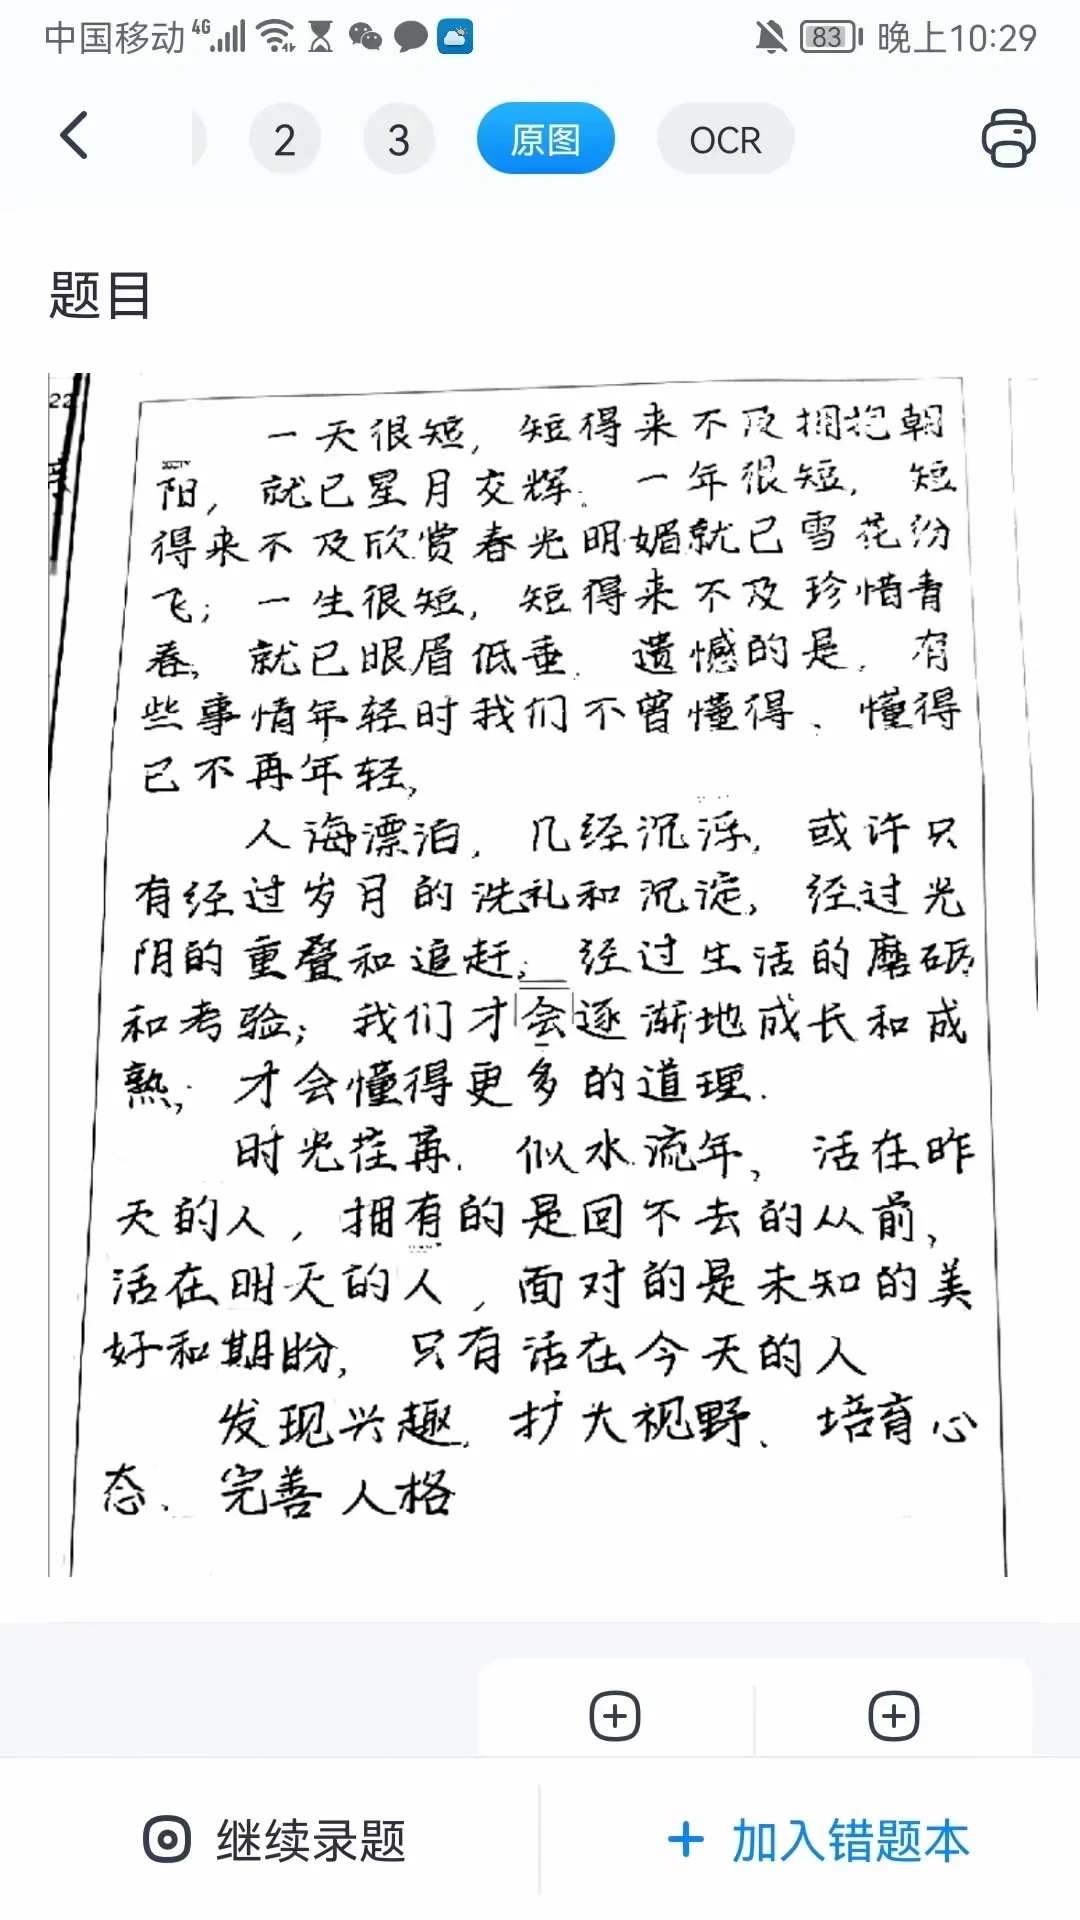 中国移动 4G 83 晚上10:29
2 3 原图 OCR
题目
22
一天很短，短得来不及拥抱朝
阳，就已星月交辉．一年很短，短
得来不及欣赏春光明媚就已雪花纷
飞；一生很短，短得来不及珍惜青
春，就已眼眉低垂．遗憾的是，有
些事情年轻时我们不曾懂得、懂得
已不再年轻，
人海漂泊，几经沉浮，或许只
有经过岁月的洗礼和沉淀，经过光
阴的重叠和追赶；经过生活的磨砺
和考验；我们才会逐渐地成长和成
熟；才会懂得更多的道理．
时光荏苒．似水流年，活在昨
天的人，拥有的是回不去的从前，
活在明天的人，面对的是未知的美
好和期盼，只有活在今天的人
发现兴趣．扩大视野、培育心
态、完善人格
继续录题
+ 加入错题本